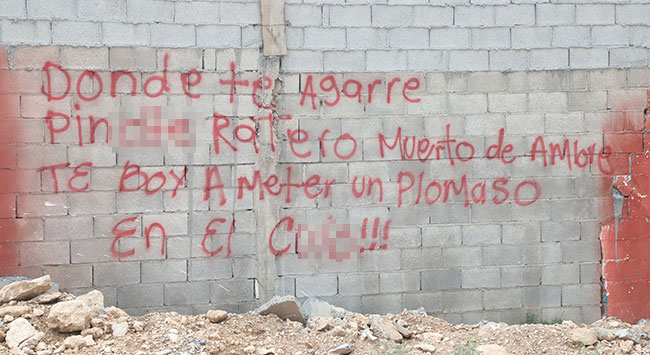 Donde te Agarre
Pin Ratero Muerto de Ambre
TE BOY A meter un Plomaso
En El C !!!